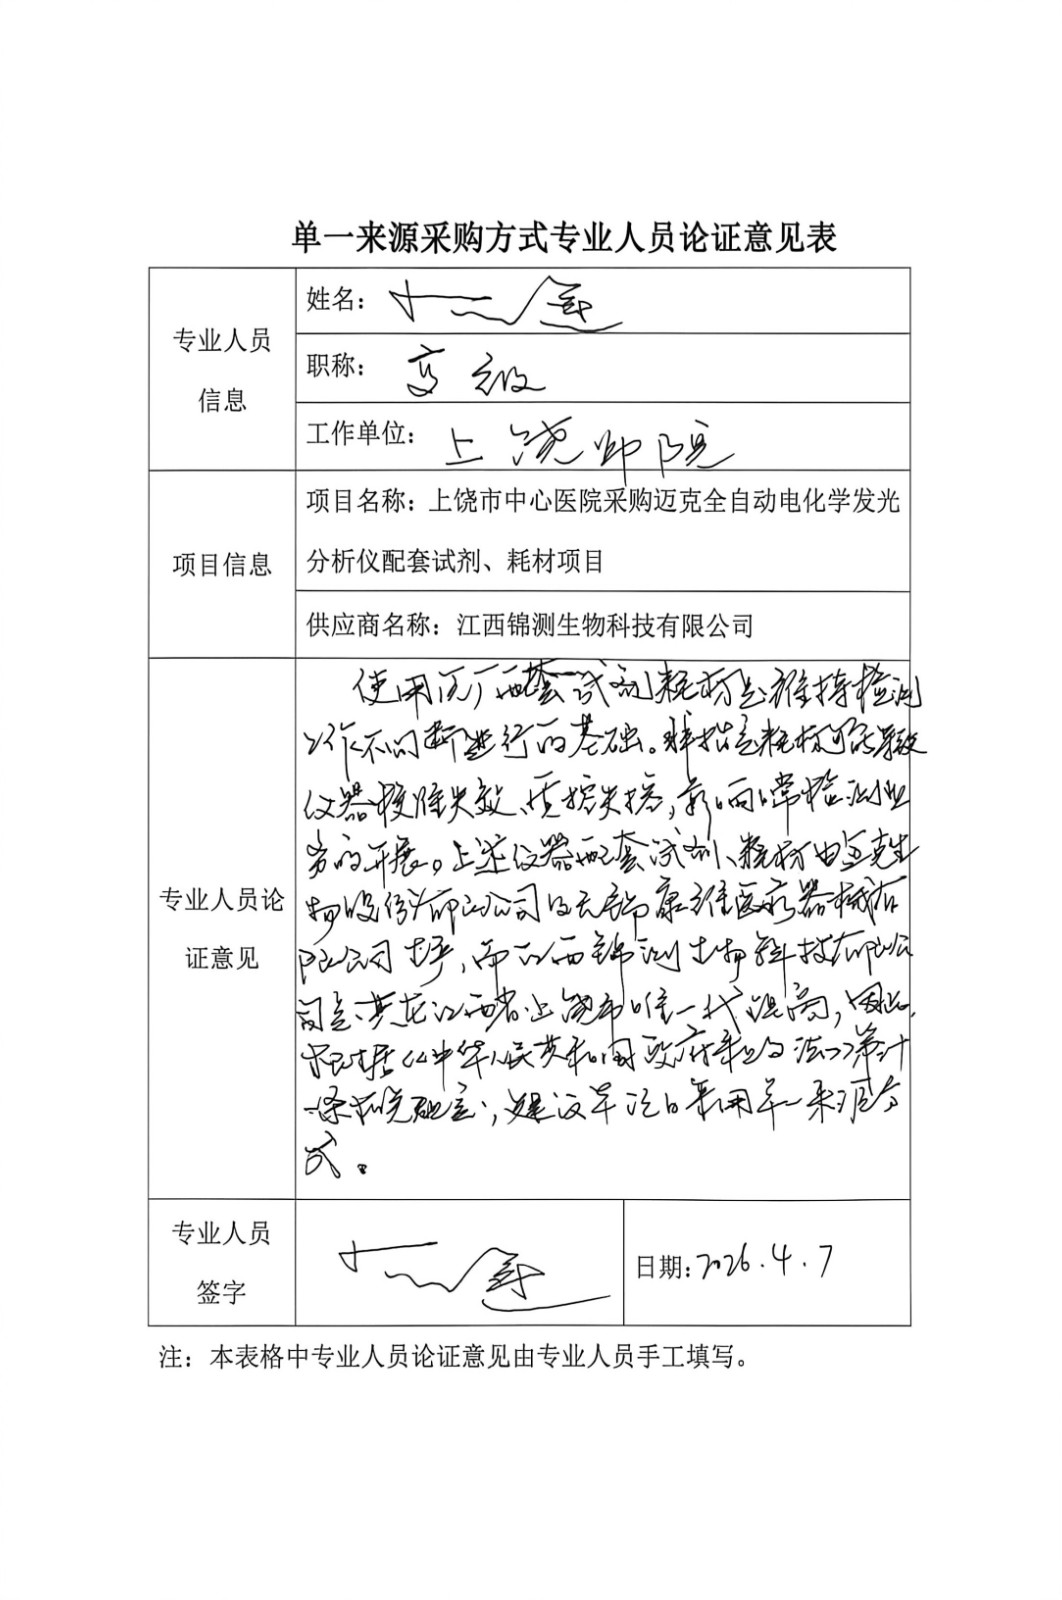 单一来源采购方式专业人员论证意见表
专业人员
信息
姓名：
职称： 高级
工作单位： 上饶师院
项目信息
项目名称：上饶市中心医院采购迈克全自动电化学发光
分析仪配套试剂、耗材项目
供应商名称：江西锦测生物科技有限公司
专业人员论
证意见
使用原厂配套试剂耗材是维持检测
工作不间断进行的基础。非指定耗材可能导致
仪器校准失效、质控失控，影响日常检测业
务的开展。上述仪器配套试剂、耗材由迈克生
物股份有限公司及康维医疗器械有
限公司生产，而江西锦测生物科技有限公
司是其在江西省上饶市唯一代理商，因此，
根据《中华人民共和国政府采购法》第三十
一条规定，建议本项目采用单一来源方
式。
专业人员
签字
日期：2026.4.7
注：本表格中专业人员论证意见由专业人员手工填写。